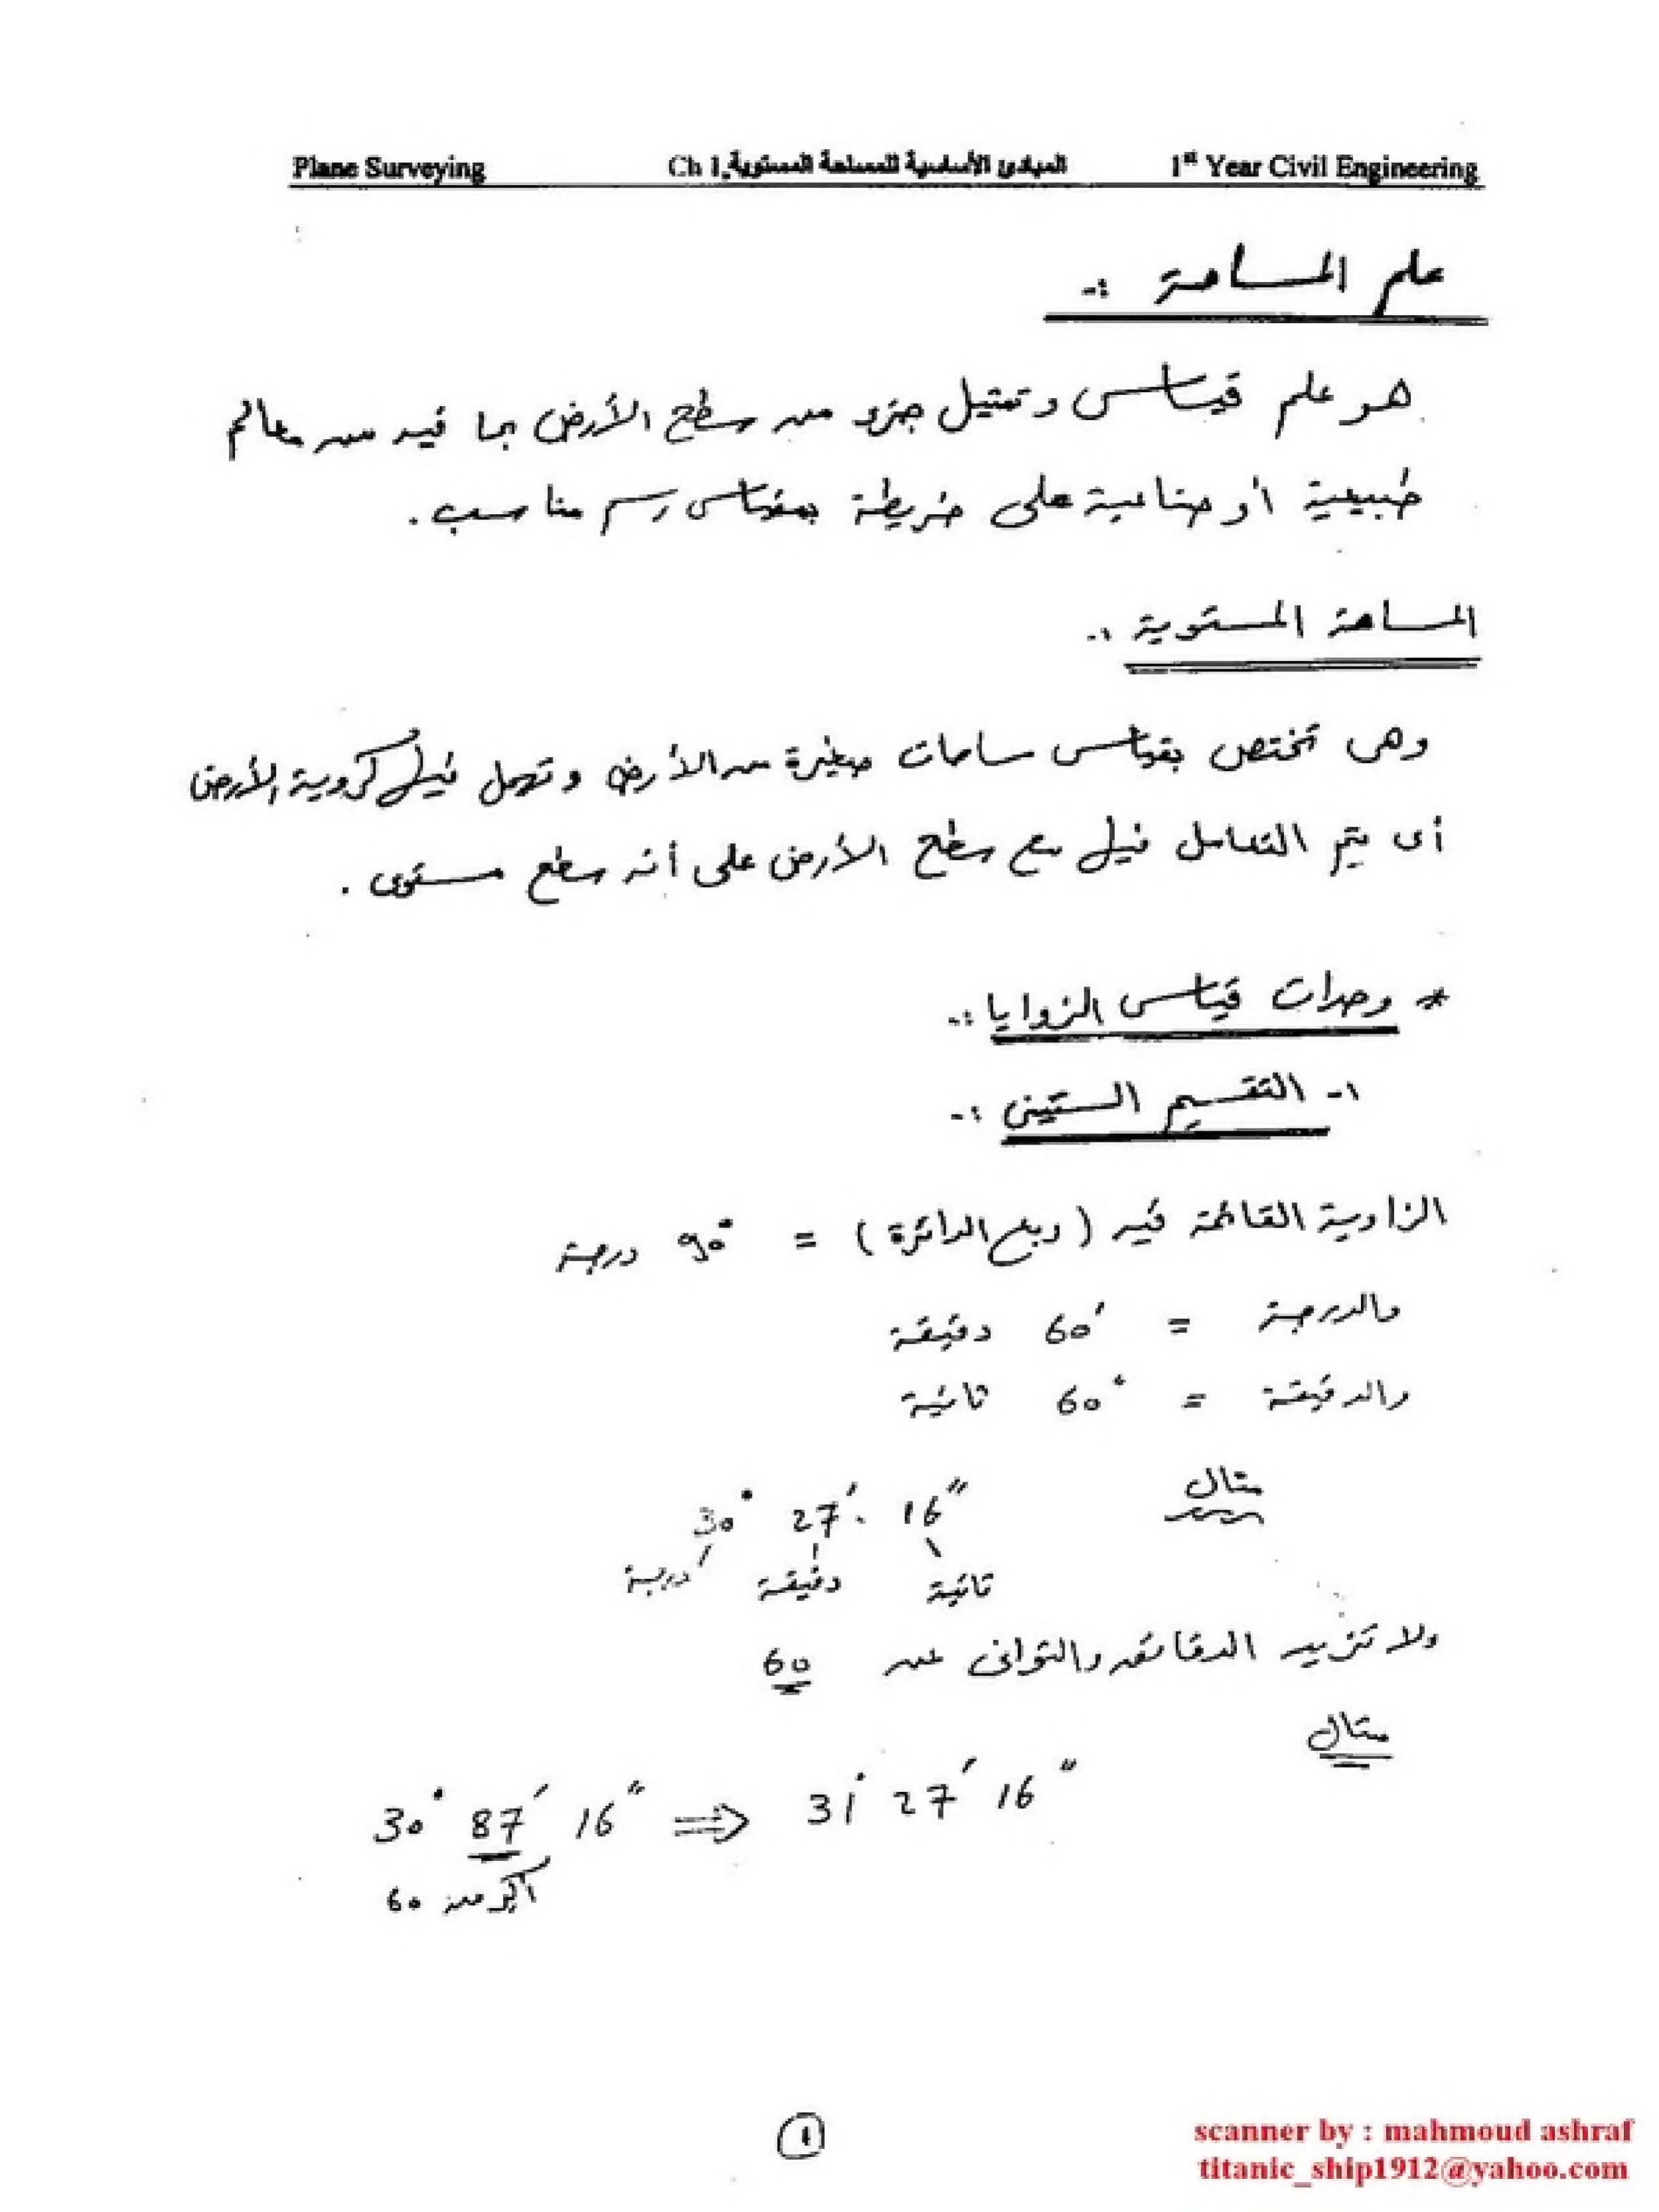 Plane Surveying Ch 1.المبادئ الأساسية للمساحة المستوية 1st Year Civil Engineering
علم المساحة :-
هو علم قياس وتمثيل جزء من سطح الأرض بما فيه من معالم
طبيعية أو صناعية على خريطة بمقياس رسم مناسب .
المساحة المستوية :-
وهى تختص بقياس مساحات صغيرة من الأرض وتهمل فيها كروية الأرض
أى يتم التعامل فيها مع سطح الأرض على أنه سطح مستوى .
* وحدات قياس الزوايا :-
١- التقسيم الستينى :-
الزاوية القائمة فيه ( ربع الدائرة ) = 90° درجة
والدرجة = 60′ دقيقة
والدقيقة = 60″ ثانية
مثال
30° 27′ 16″
درجة دقيقة ثانية
ولا تزيد الدقائق والثوانى عن 60
مثال
30° 87′ 16″ ⇒ 31° 27′ 16″
أكبر من 60
1
scanner by : mahmoud ashraf
titanic_ship1912@yahoo.com